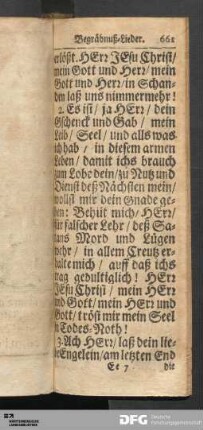 Begräbnuß-Lieder. 661
erlößt. HErr JEsu Christ/
mein Gott und Herr/ mein
Gott und Herr/ in Schan-
den laß uns nimmermehr!
2. Es ist/ ja HErr/ dein
Gschenck und Gab/ mein
Leib/ Seel/ und alls was
ich hab/ in diesem armen
Leben/ damit ichs brauch
zum Lobe dein/ zu Nutz und
Dienst deß Nächsten mein/
wollst mir dein Gnade ge-
ben: Behüt mich/ HErr/
für falscher Lehr/ deß Sa-
tans Mord und Lügen
wehr/ in allem Creutz er-
halte mich/ auff daß ichs
trag gedultiglich! HErr
JEsu Christ/ mein HErr
und Gott/ mein HErr und
Gott/ tröst mir mein Seel
in Todes-Noth!
3. Ach HErr/ laß dein lie-
be Engelein/ am letzten End
Ee 7 die
DFG